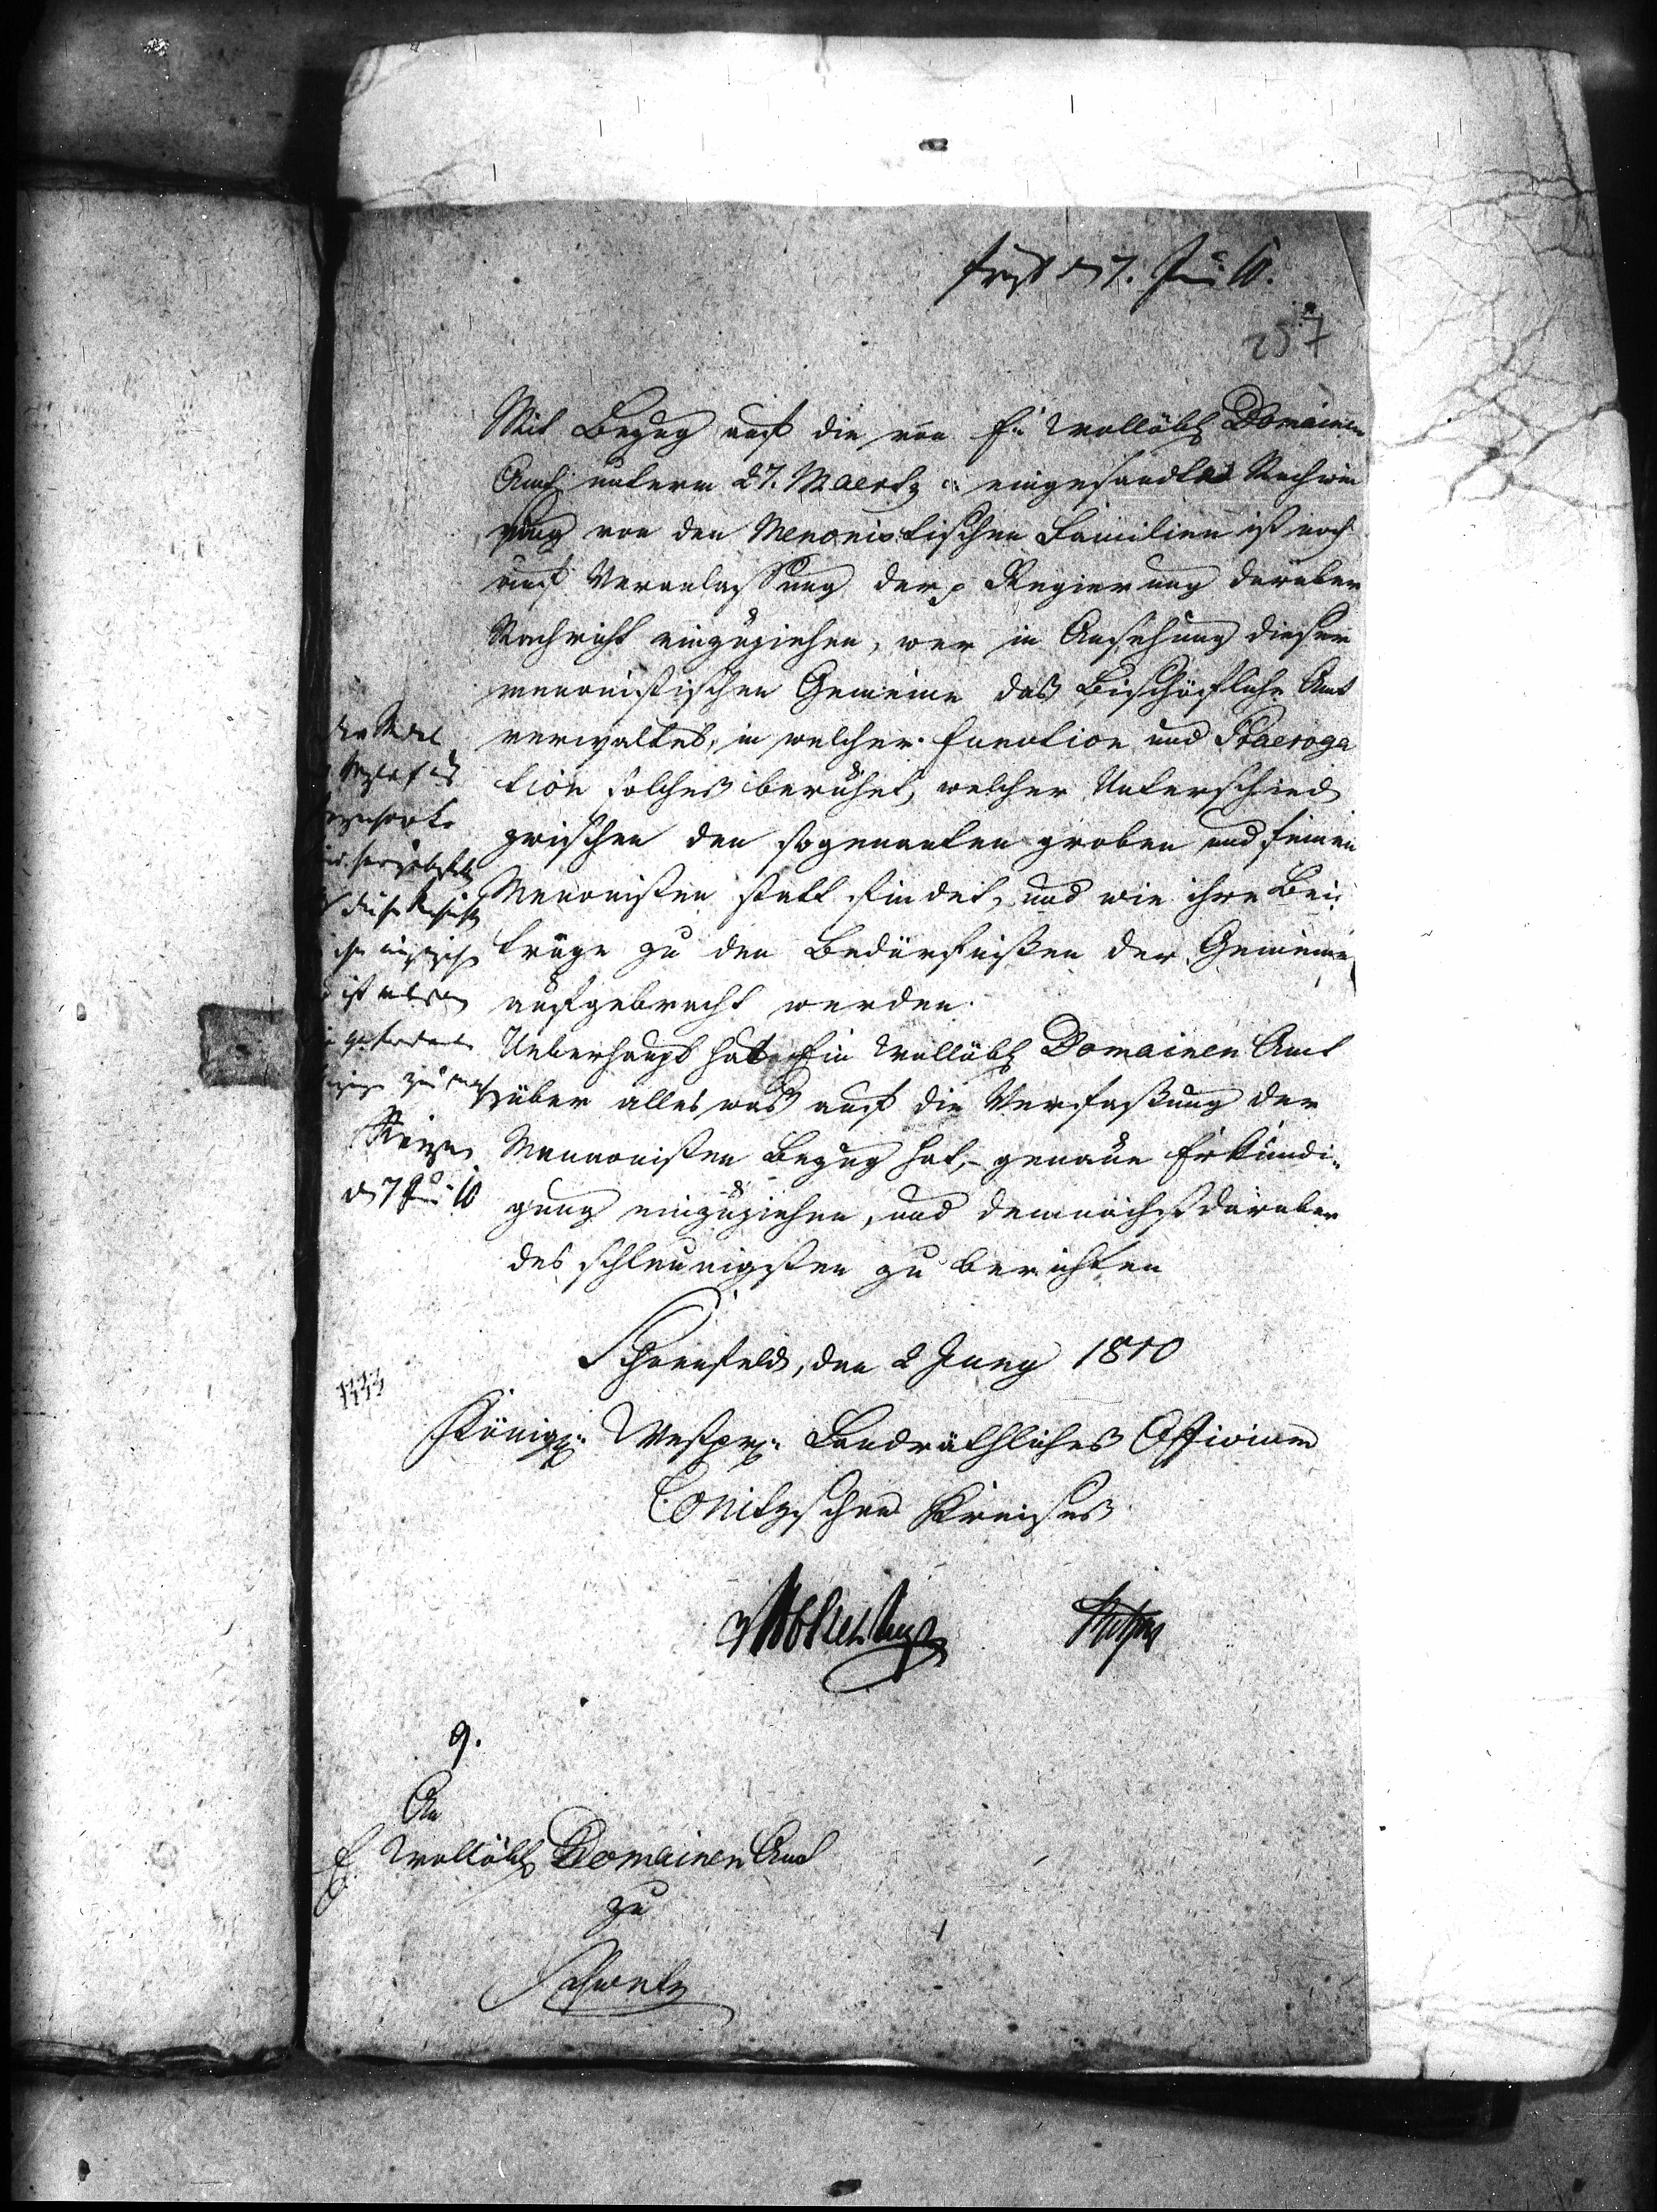 d 7. Juni 10.
257
Mit Bezug auf die von E. Wollöbl Domainen
Amt unterm 27. Maertz c. eingesandte Nachwei
sung von den Menonistischen Familien ist noch
auf Veranlassung der p Regierung darüber
Nachricht einzuziehen, wer in Ansehung dieser
mennonistischen Gemeine das Bischöfliche Amt
verwaltet, in welcher Function und Praeroga
tion solches beruhet, welcher Unterschied
zwischen den sogenanten groben und feinen
Menonisten statt findet, und wie ihre Bei
träge zu den Bedürfnißen der Gemeine
aufgebracht werden.
Ueberhaupt hat Ein Wollöbl Domainen Amt
über alles was auf die Verfaßung der
Mennonisten Bezug hat, genaue Erkundi
gung einzuziehen, und demnächst darüber
des schleunigsten zu berichten
d 7 Juni 10
Schoenfeld, den 2 Juny 1810
Königl. Westpr. Landräthliches Officium
Conitzschen Kreises
9.
An
E. Wollöbl Domainen Amt
zu
Schwetz